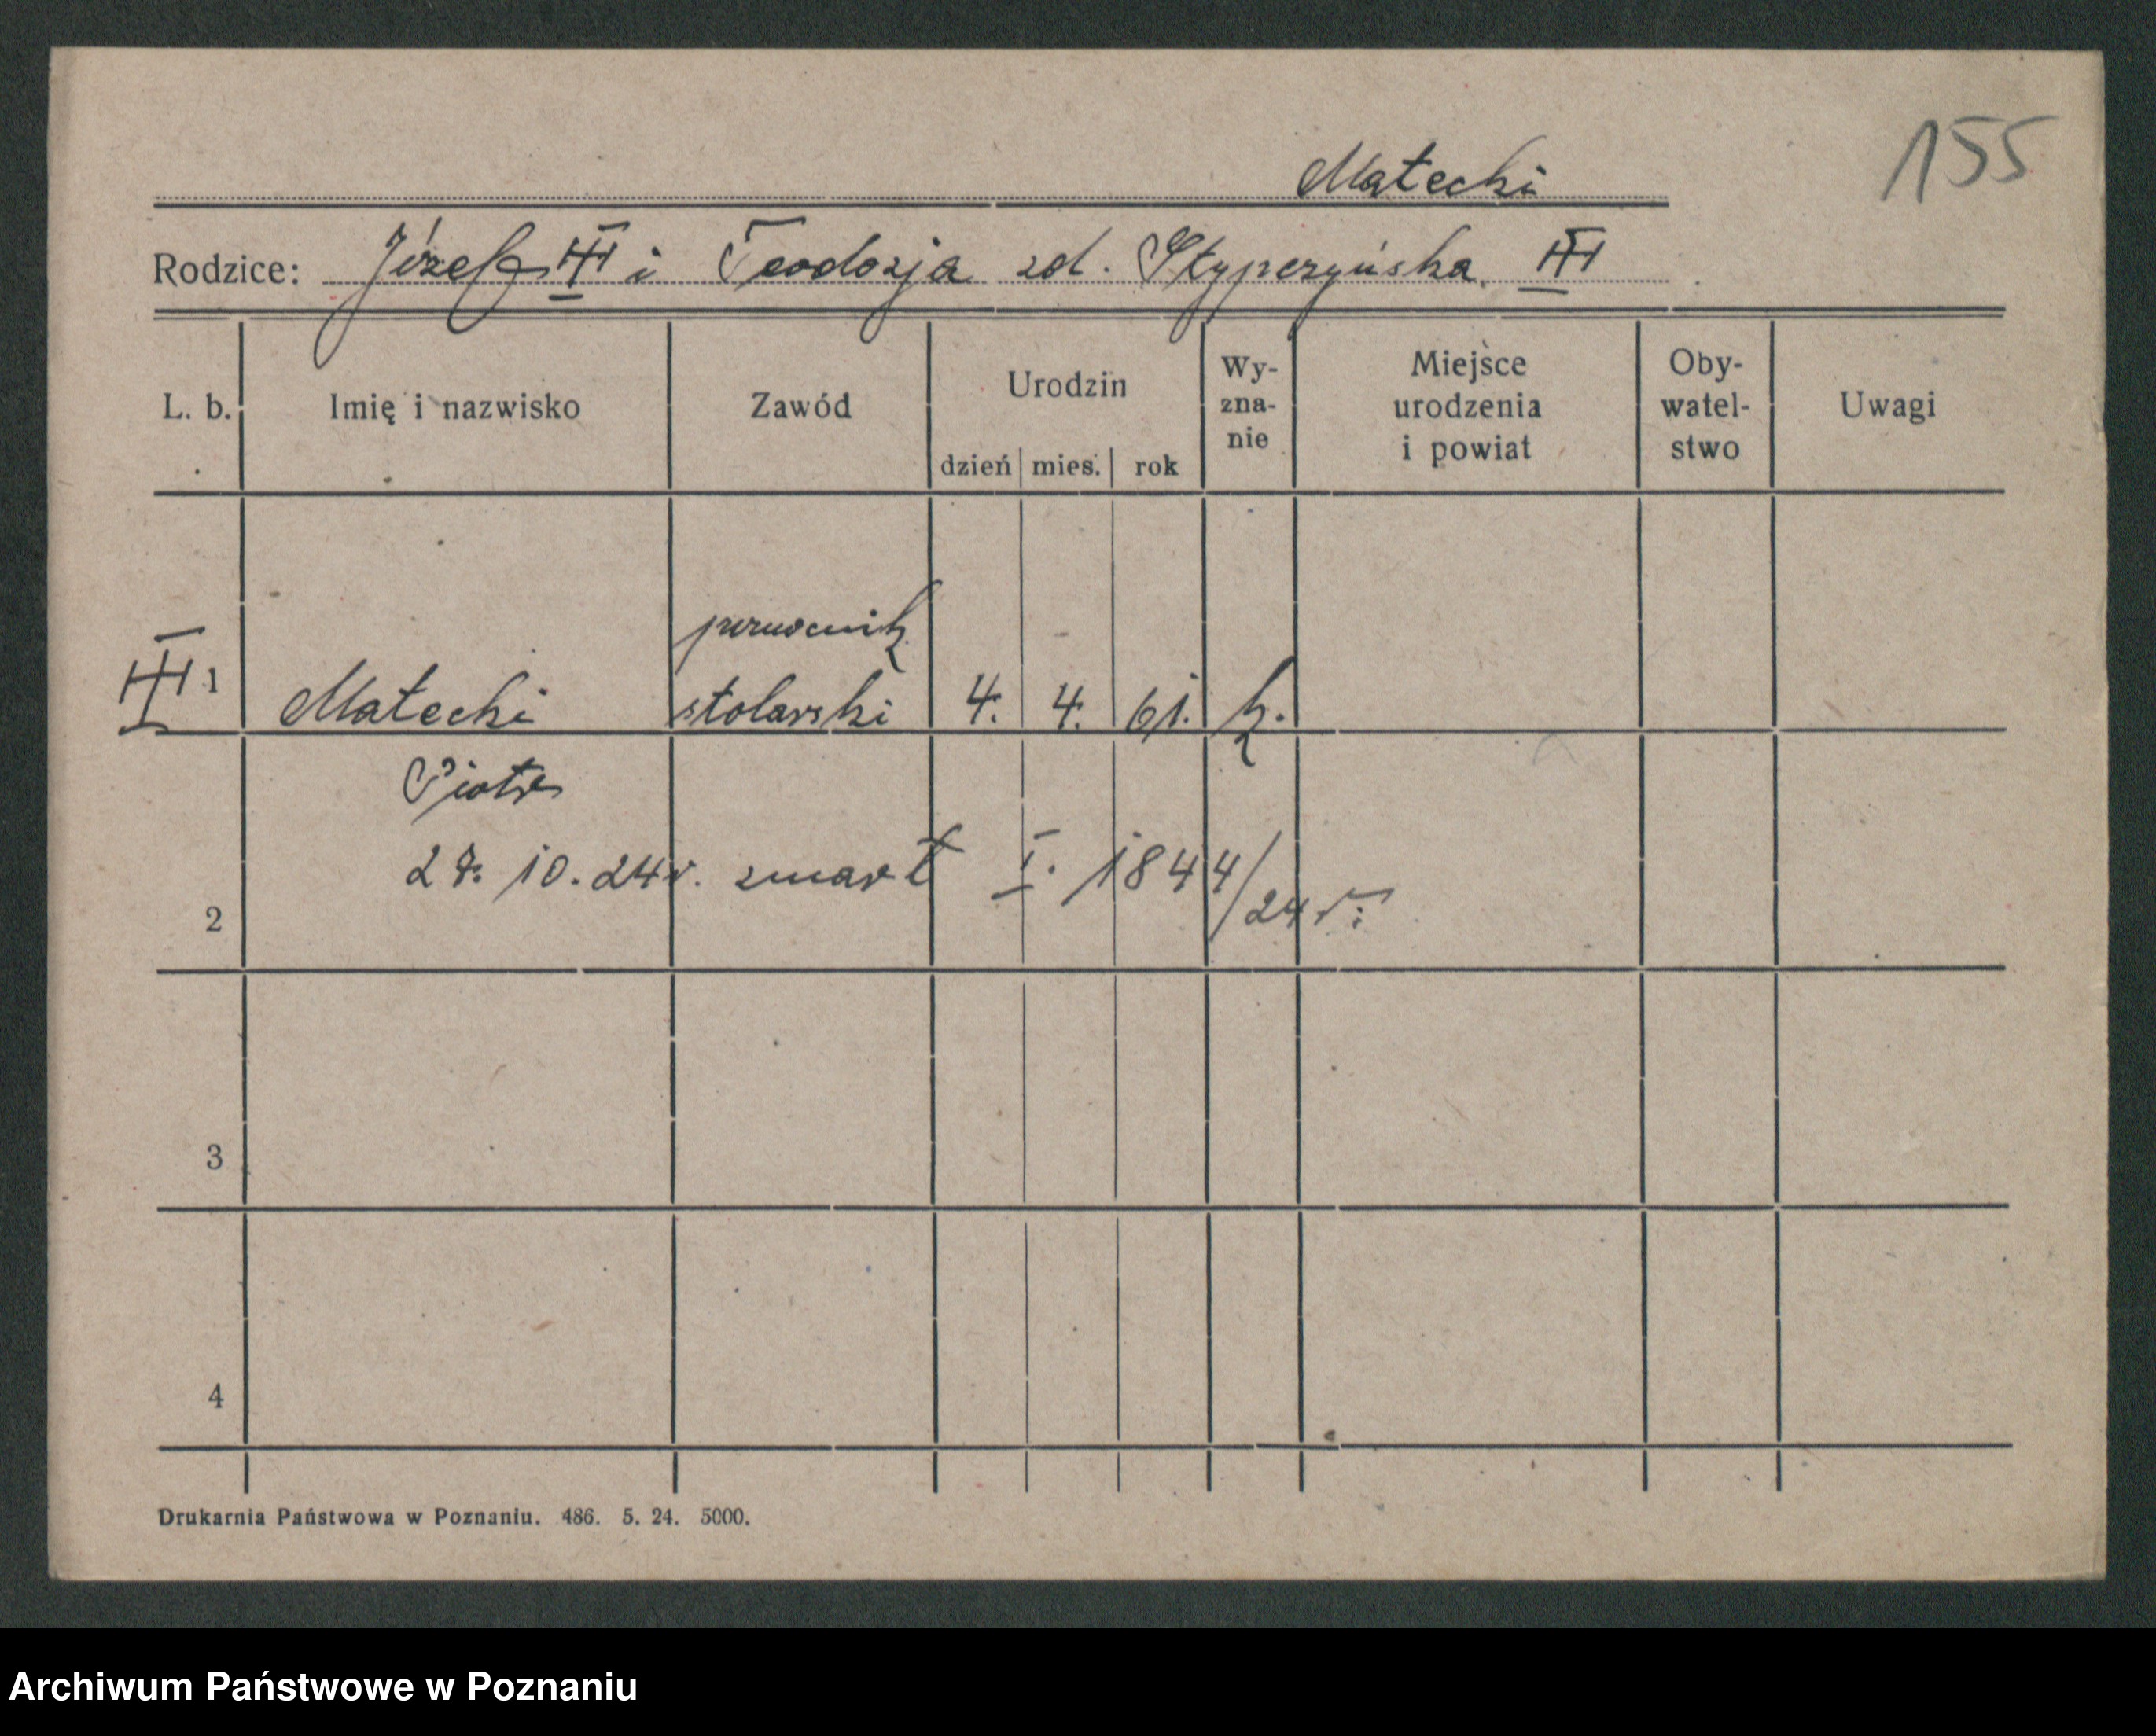 155
Małecki
Rodzice: Józef ✝ i Teodozja zd. Stypczyńska ✝
L. b. Imię i nazwisko Zawód Urodzin dzień mies. rok Wy-zna-nie Miejsce urodzenia i powiat Oby-watel-stwo Uwagi
pomocnik
1 Małecki stolarski 4. 4. 61. k.
Piotr
28. 10. 24 r. zmarł I. 1844/24 r.
2
3
4
Drukarnia Państwowa w Poznaniu. 486. 5. 24. 5000.
Archiwum Państwowe w Poznaniu